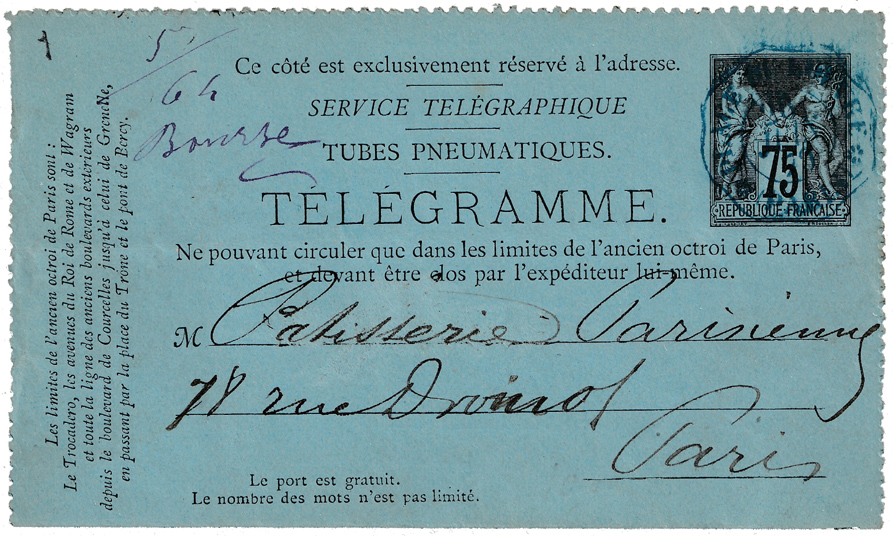 Ce côté est exclusivement réservé à l'adresse.
SERVICE TÉLÉGRAPHIQUE
TUBES PNEUMATIQUES.
TÉLÉGRAMME.
Ne pouvant circuler que dans les limites de l'ancien octroi de Paris,
et devant être clos par l'expéditeur lui-même.
75
RÉPUBLIQUE FRANÇAISE
64
Bourse
M Patisserie Parisienne
78 rue Drouot
Paris
Le port est gratuit.
Le nombre des mots n'est pas limité.
Les limites de l'ancien octroi de Paris sont :
Le Trocadero, les avenues du Roi de Rome et de Wagram
et toute la ligne des anciens boulevards extérieurs
depuis le boulevard de Courcelles jusqu'à celui de Grenelle,
en passant par la place du Trône et le pont de Bercy.